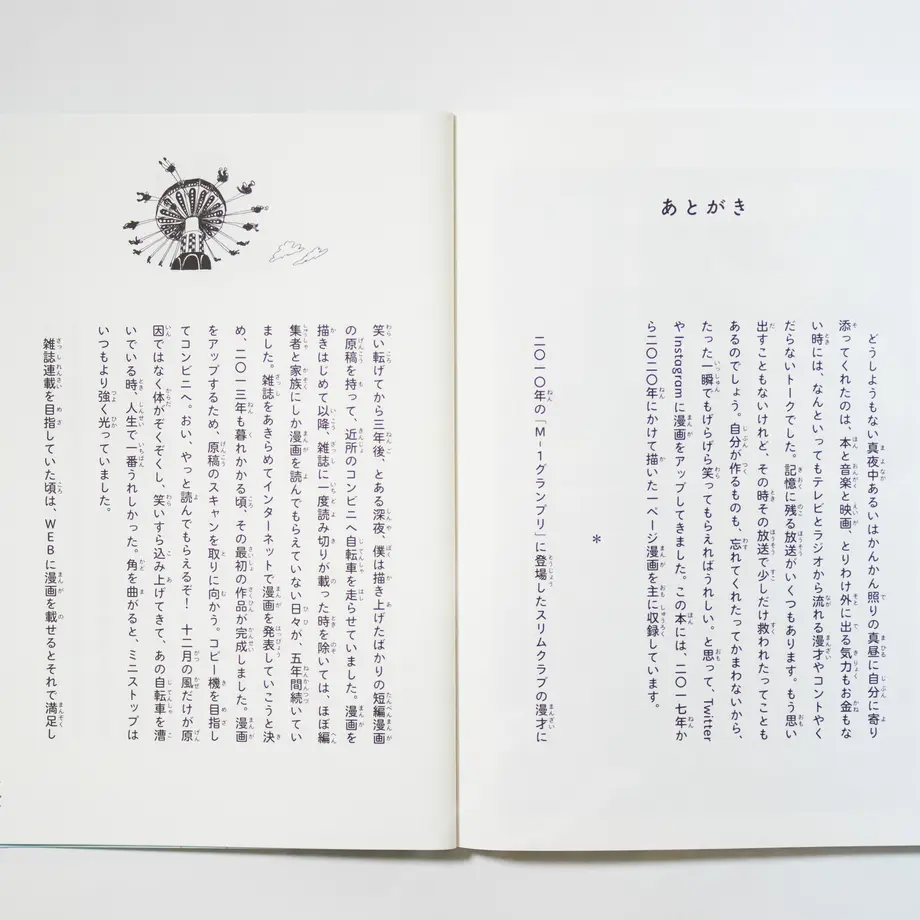 あとがき
どうしようもない真夜中あるいはかんかん照りの真昼に自分に寄り
添ってくれたのは、本と音楽と映画、とりわけ外に出る気力もお金もな
い時には、なんといってもテレビとラジオから流れる漫才やコントやく
だらないトークでした。記憶に残る放送がいくつもあります。もう思い
出すこともないけれど、その時その放送で少しだけ救われたってことも
あるのでしょう。自分が作るものも、忘れてくれたってかまわないから、
たった一瞬でもげらげら笑ってもらえればうれしい。と思って、Twitter
や Instagram に漫画をアップしてきました。この本には、二〇一七年か
ら二〇二〇年にかけて描いた一ページ漫画を主に収録しています。
*
二〇一〇年の「M-1グランプリ」に登場したスリムクラブの漫才に
笑い転げてから三年後、とある深夜、僕は描き上げたばかりの短編漫画
の原稿を持って、近所のコンビニへ自転車を走らせていました。漫画を
描きはじめて以降、雑誌に一度読み切りが載った時を除いては、ほぼ編
集者と家族にしか漫画を読んでもらえていない日々が、五年間続いてい
ました。雑誌をあきらめてインターネットで漫画を発表していこうと決
め、二〇一三年も暮れかかる頃、その最初の作品が完成しました。漫画
をアップするため、原稿のスキャンを取りに向かう。コピー機を目指し
てコンビニへ。おい、やっと読んでもらえるぞ！　十二月の風だけが原
因ではなく体がぞくぞくし、笑いすら込み上げてきて、あの自転車を漕
いでいる時、人生で一番うれしかった。角を曲がると、ミニストップは
いつもより強く光っていました。
雑誌連載を目指していた頃は、WEBに漫画を載せるとそれで満足し